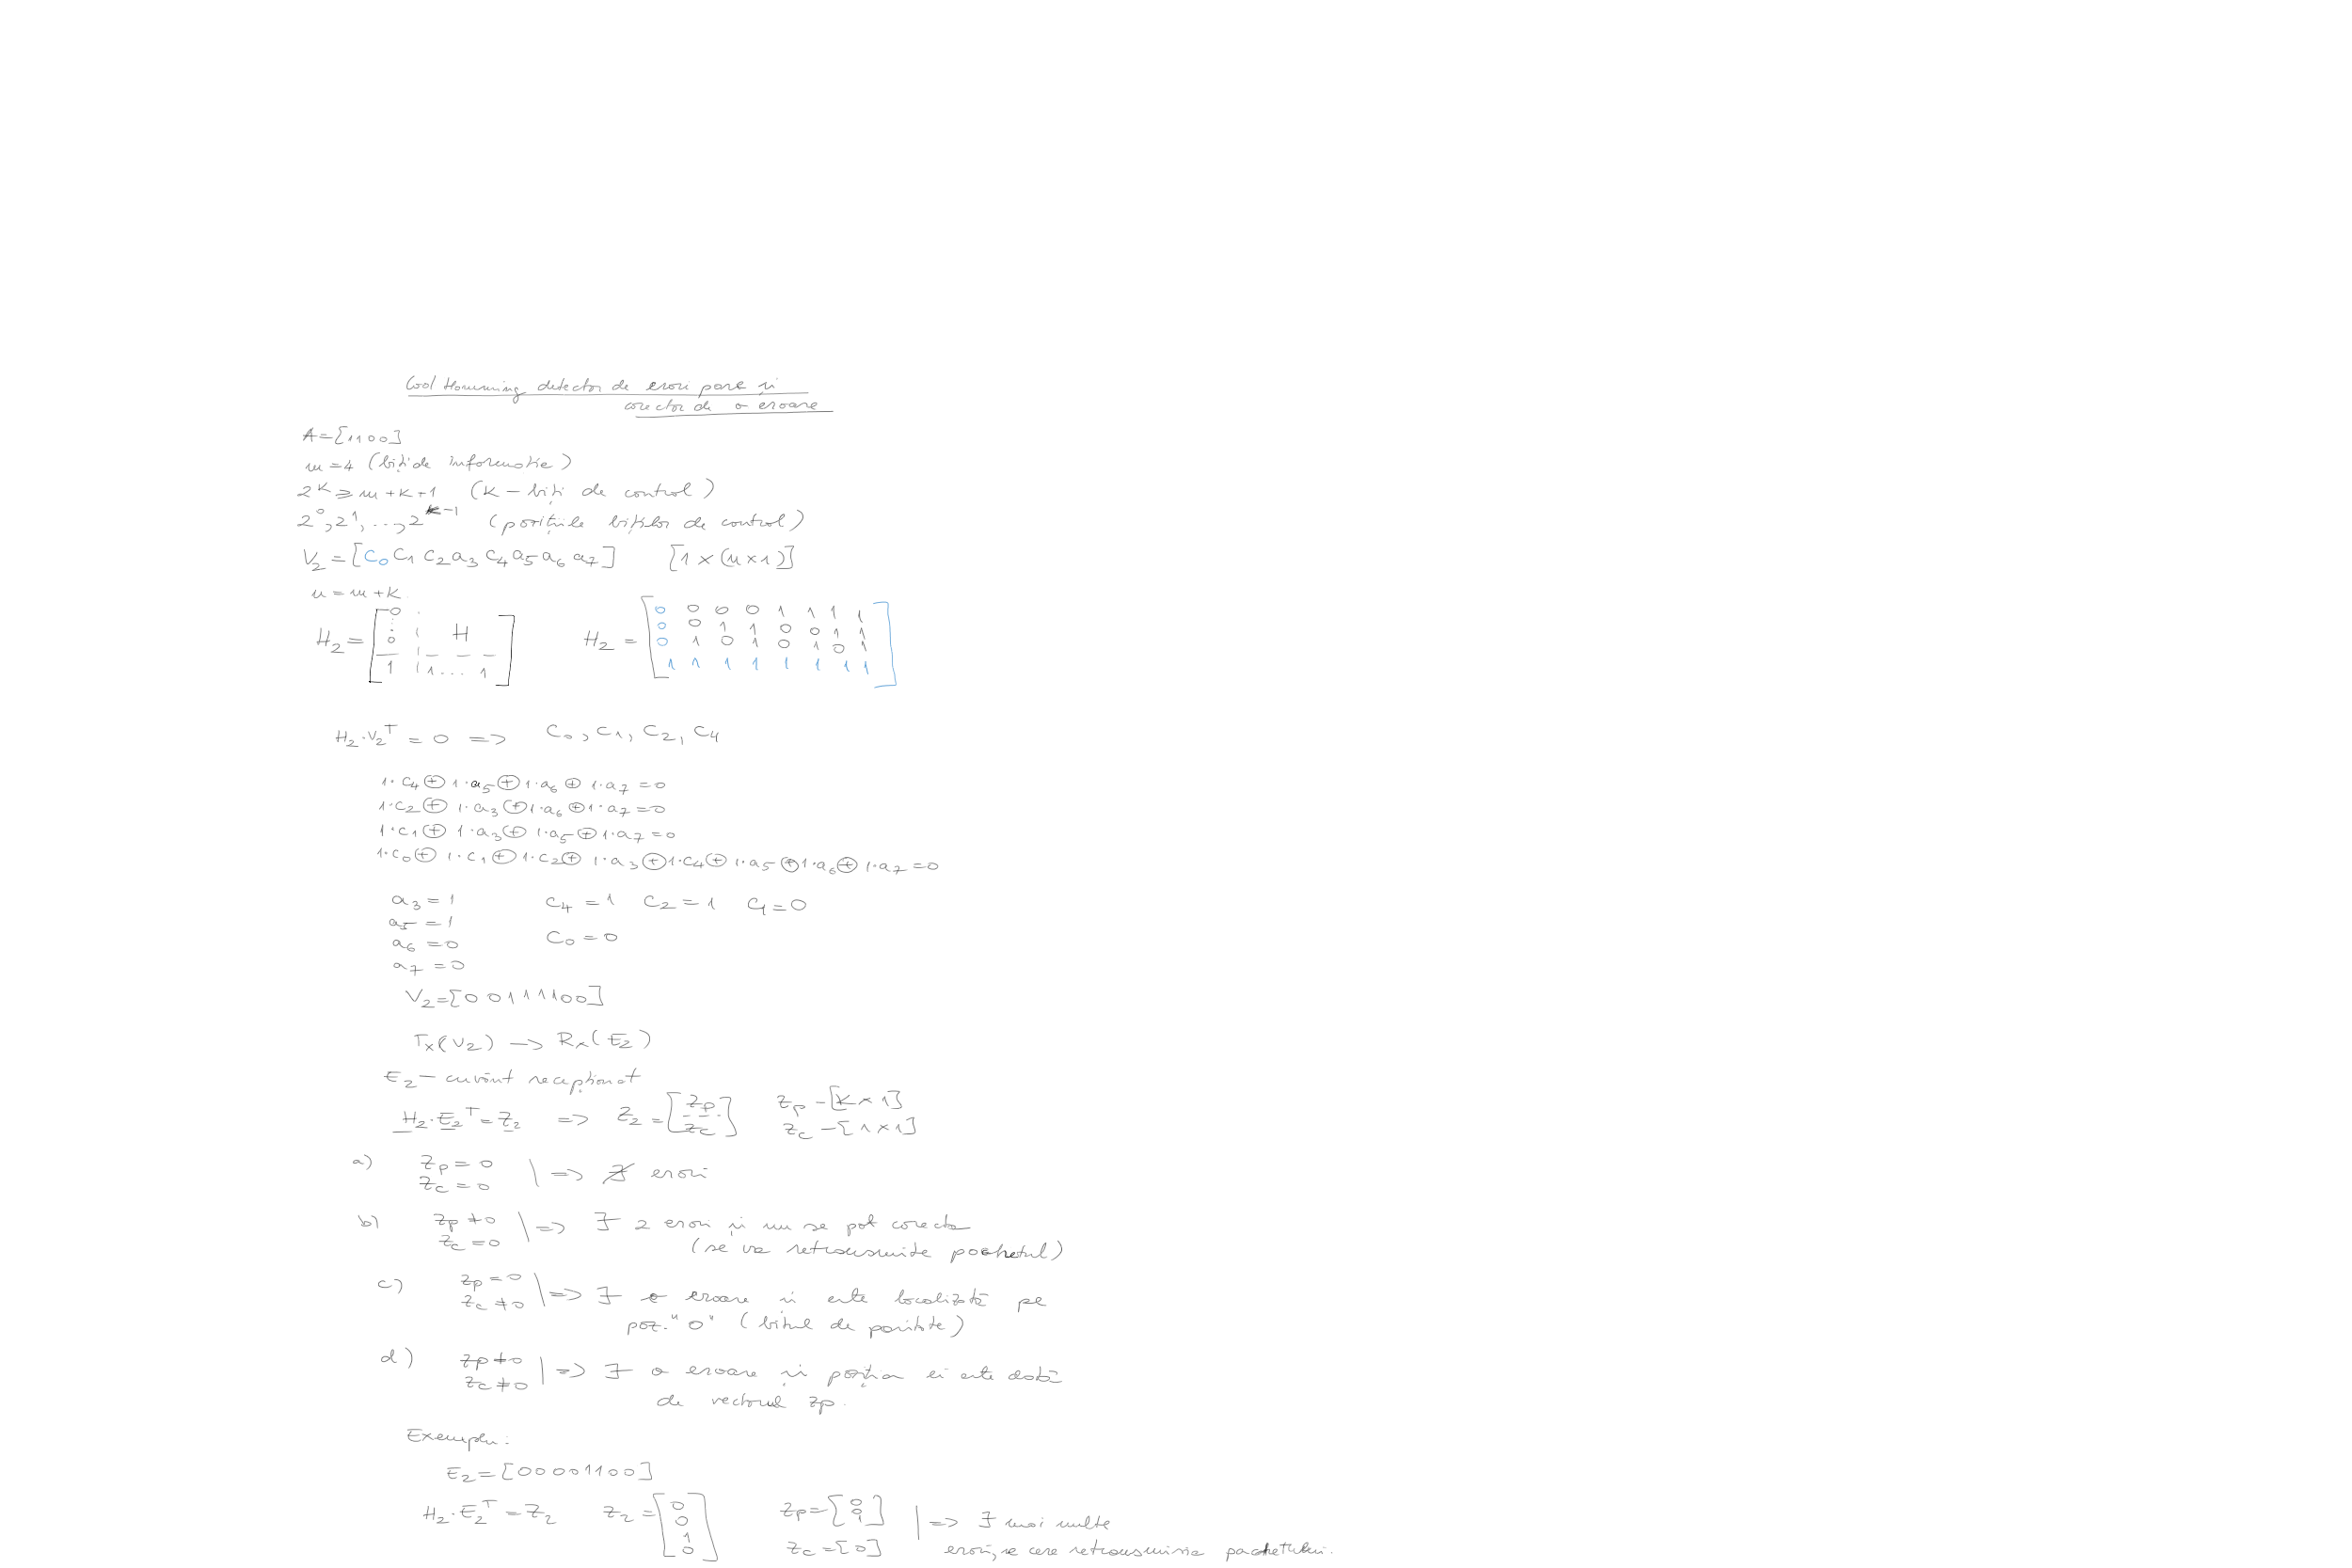 Cod Hamming detector de erori pare și
corector de o eroare
A=[1100]
m=4 (biți de informatie)
2^k ≥ m+k+1 (k – biți de control)
2^0, 2^1, ..., 2^k-1 (pozițiile biților de control)
V2=[C0 C1 C2 a3 C4 a5 a6 a7] [1×(n×1)]
n=m+k
H2 = [0 ⋮ 0 | H / 1 | 1 ... 1]
H2 = [
0 0 0 0 1 1 1 1
0 0 1 1 0 0 1 1
0 1 0 1 0 1 0 1
1 1 1 1 1 1 1 1
]
H2·V2^T = 0 => C0, C1, C2, C4
1·C4 ⊕ 1·a5 ⊕ 1·a6 ⊕ 1·a7 = 0
1·C2 ⊕ 1·a3 ⊕ 1·a6 ⊕ 1·a7 = 0
1·C1 ⊕ 1·a3 ⊕ 1·a5 ⊕ 1·a7 = 0
1·C0 ⊕ 1·C1 ⊕ 1·C2 ⊕ 1·a3 ⊕ 1·C4 ⊕ 1·a5 ⊕ 1·a6 ⊕ 1·a7 = 0
a3 = 1 C4 = 1 C2 = 1 C1 = 0
a5 = 1
a6 = 0 C0 = 0
a7 = 0
V2=[00111100]
Tx(V2) —> Rx(E2)
E2 – cuvânt recepționat
H2·E2^T = Z2 => Z2 = [zp / zc] zp – [k × 1]
zc – [1×1]
a) zp = 0
zc = 0 | => ∄ erori
b) zp ≠ 0
zc = 0 | => ∃ 2 erori și nu se pot corecta
(se va retransmite pachetul)
c) zp = 0
zc ≠ 0 | => ∃ o eroare și este localizată pe
poz. "0" (bitul de paritate)
d) zp ≠ 0
zc ≠ 0 | => ∃ o eroare și poziția ei este dată
de vectorul zp.
Exemplu:
E2=[00001100]
H2·E2^T = Z2 Z2 = [0 0 1 0] zp = [0 0 1] | => ∃ mai multe
zc = [0] erori, se cere retransmisia pachetului.